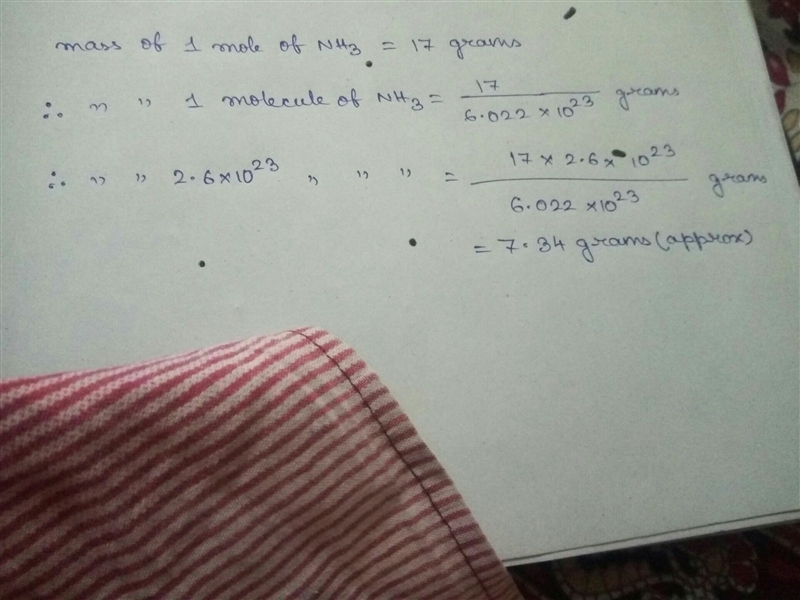 mass of 1 mole of NH3 = 17 grams
∴ " " 1 molecule of NH3 = 17 / 6.022 × 10^23 grams
∴ " " 2.6×10^23 " " " = 17 × 2.6 × 10^23 / 6.022 × 10^23 grams
= 7.34 grams (approx)